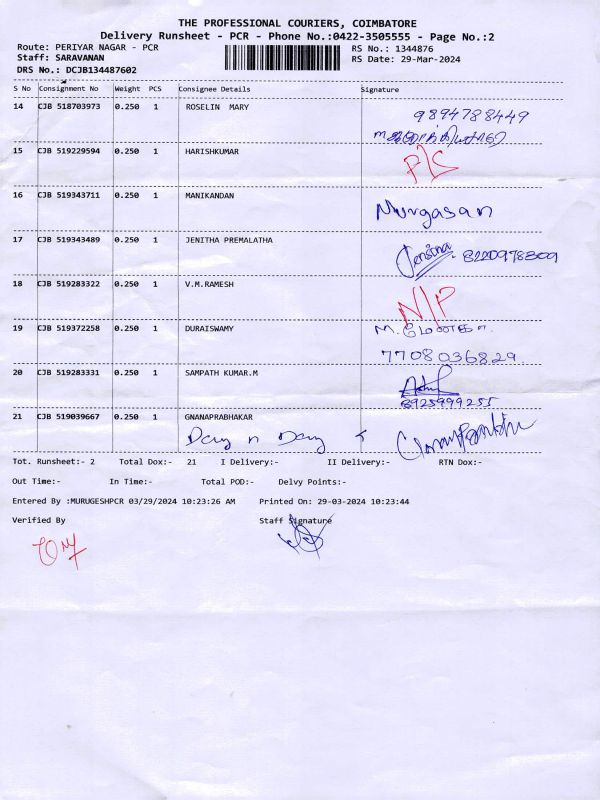 THE PROFESSIONAL COURIERS, COIMBATORE
Delivery Runsheet - PCR - Phone No.:0422-3505555 - Page No.:2
Route: PERIYAR NAGAR - PCR RS No.: 1344876
Staff: SARAVANAN RS Date: 29-Mar-2024
DRS No.: DCJB134487602
S No Consignment No Weight PCS Consignee Details Signature
14 CJB 518703973 0.250 1 ROSELIN MARY 9894788449
15 CJB 519229594 0.250 1 HARISHKUMAR P/C
16 CJB 519343711 0.250 1 MANIKANDAN Murgasan
17 CJB 519343489 0.250 1 JENITHA PREMALATHA 8220978309
18 CJB 519283322 0.250 1 V.M.RAMESH N/P
19 CJB 519372258 0.250 1 DURAISWAMY M. மேனகா
7708036829
20 CJB 519283331 0.250 1 SAMPATH KUMAR.M
8925999255
21 CJB 519039667 0.250 1 GNANAPRABHAKAR
Tot. Runsheet:- 2 Total Dox:- 21 I Delivery:- II Delivery:- RTN Dox:-
Out Time:- In Time:- Total POD:- Delvy Points:-
Entered By :MURUGESHPCR 03/29/2024 10:23:26 AM Printed On: 29-03-2024 10:23:44
Verified By Staff Signature